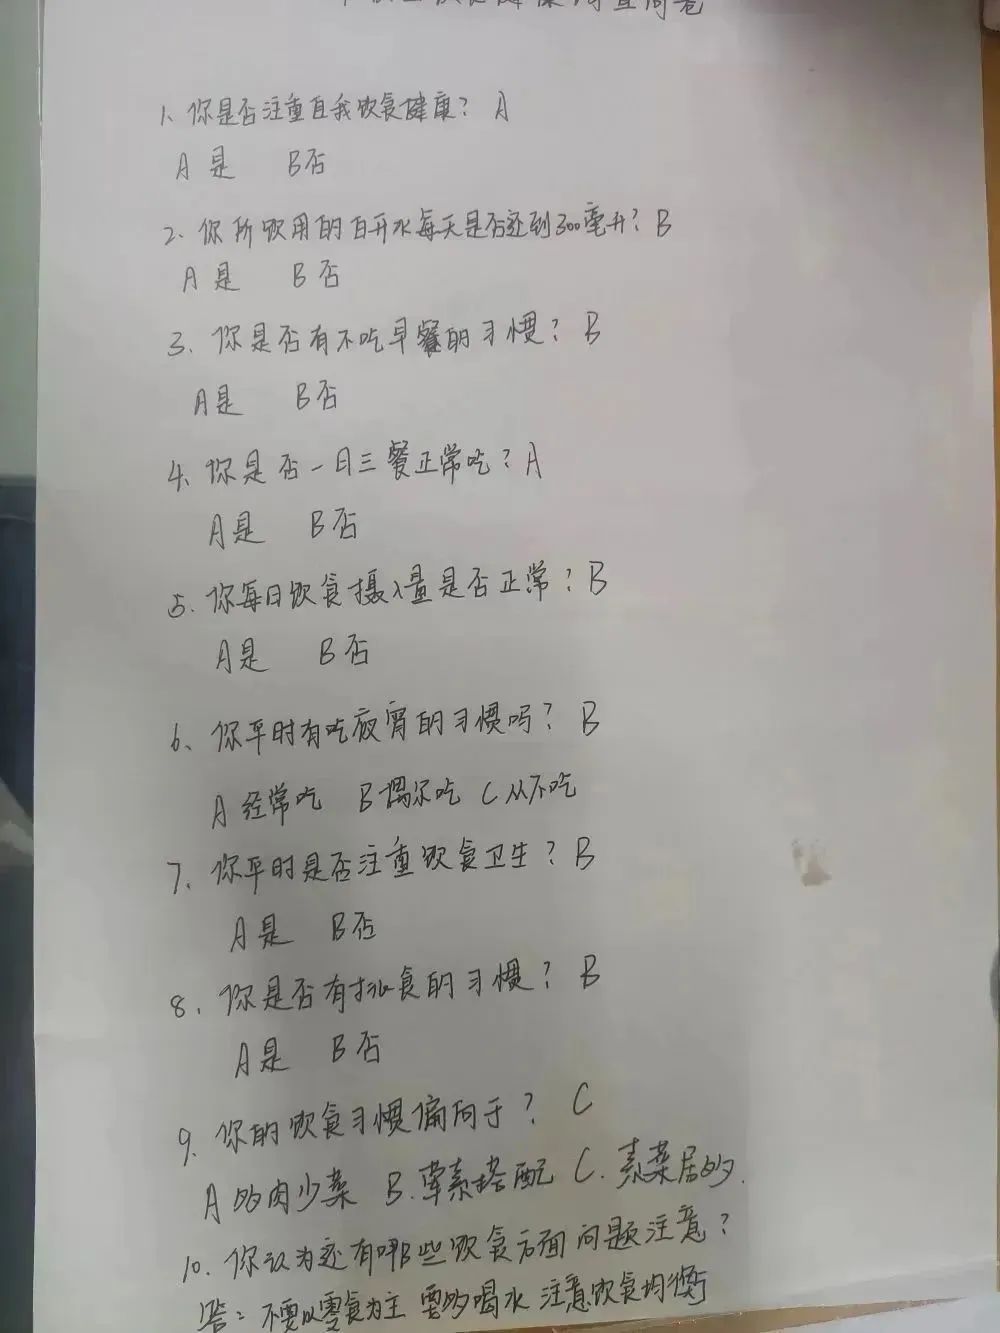 饮食健康调查问卷
1、你是否注重自我饮食健康? A
A 是 B否
2、你所饮用的白开水每天是否达到300毫升? B
A 是 B 否
3、你是否有不吃早餐的习惯? B
A是 B否
4、你是否一日三餐正常吃? A
A是 B否
5、你每日饮食摄入量是否正常? B
A是 B否
6、你平时有吃夜宵的习惯吗? B
A 经常吃 B偶尔吃 C从不吃
7、你平时是否注重饮食卫生? B
A是 B否
8、你是否有挑食的习惯? B
A是 B否
9、你的饮食习惯偏向于? C
A 多肉少菜 B.荤素搭配 C.素菜居多.
10、你认为还有哪些饮食方面问题注意?
答: 不要以零食为主 要多喝水 注意饮食均衡